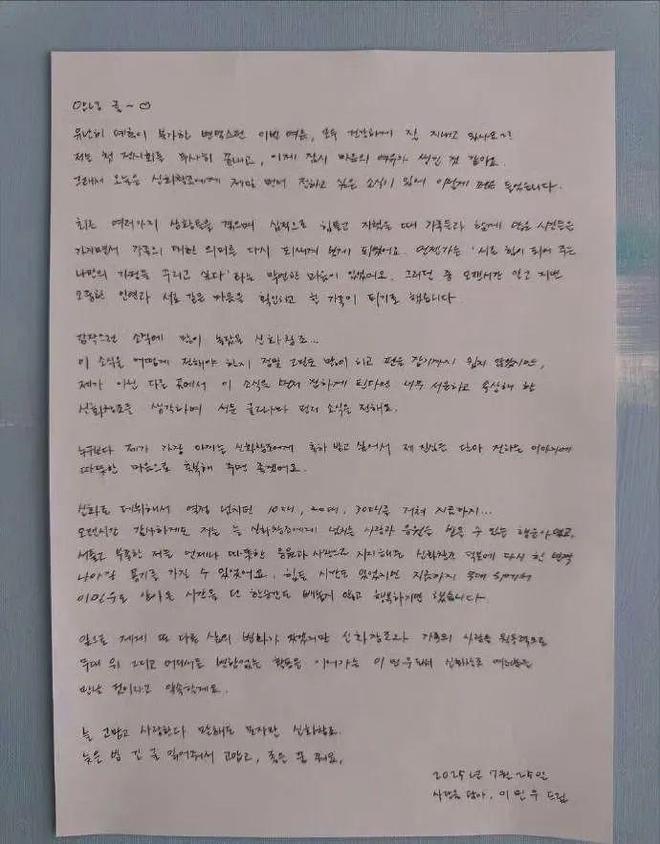 안녕 귤~♡
유난히 더욱이 불가한 변덕스런 이번 여름, 모두 건강하게 잘 지내고 있나요?!
저는 첫 전시회를 무사히 끝내고, 이제 잠시 마음의 여유가 생긴 것 같아요.
그래서 오늘은 신화창조에게 제일 먼저 전하고 싶은 소식이 있어 이렇게 펜을 들었습니다.
최근 여러가지 상황들을 겪으며 심적으로 힘들고 지쳤을 때 가족들과 함께 많은 시간들을
가지면서 가족의 대한 의미를 다시 되새기게 되었어요. 언젠가는 '서로 힘이 되어 주는
나만의 가정을 꾸리고 싶다' 라는 막연한 마음이 있었어요. 그러던 중 오랜시간 알고 지낸
소중한 인연과 서로 같은 마음을 확인하고 한 가족이 되기로 했습니다.
갑작스런 소식에 많이 놀랐을 신화창조...
이 소식을 어떻게 전해야 하지 정말 고민도 많이 하고 펜을 잡기까지 쉽지 않았지만,
제가 아닌 다른 곳에서 이 소식을 먼저 전하게 된다면 너무 서운하고 속상해 할
신화창조를 생각하며 서툰 글로나마 먼저 소식을 전해요.
누구보다 제가 가장 아끼는 신화창조에게 축하 받고 싶어서 제 진심을 담아 전하는 이야기에
따뜻한 마음으로 축복해 주면 좋겠어요.
신화로 데뷔해서 열정 넘치던 10대, 20대, 30대를 거쳐 지금까지...
오랜시간 감사하게도 저는 늘 신화창조에게 넘치는 사랑과 응원을 받을 수 있는 행운아였고,
서툴고 부족한 저를 언제나 따뜻한 응원과 사랑으로 지지해주는 신화창조 덕분에 다시 한 번
나아갈 용기를 가질 수 있었어요. 힘든 시간도 있었지만 지금까지 무대 위에서
이민우로 살아온 시간을 단 한순간도 빼놓지 않고 행복하기만 했습니다.
앞으로 제게 또 다른 삶의 변화가 있겠지만 신화창조와 가족의 사랑을 원동력으로
무대 위 그리고 어디서든 변함없는 활동을 이어가는 이민우
약속할게요.
늘 고맙고 사랑한다 말해도 모자란 신화창조.
늦은 밤 긴 글 읽어줘서 고맙고, 좋은 꿈 꿔요.
2025년 7월 25일
사랑을 담아, 이민우 드림